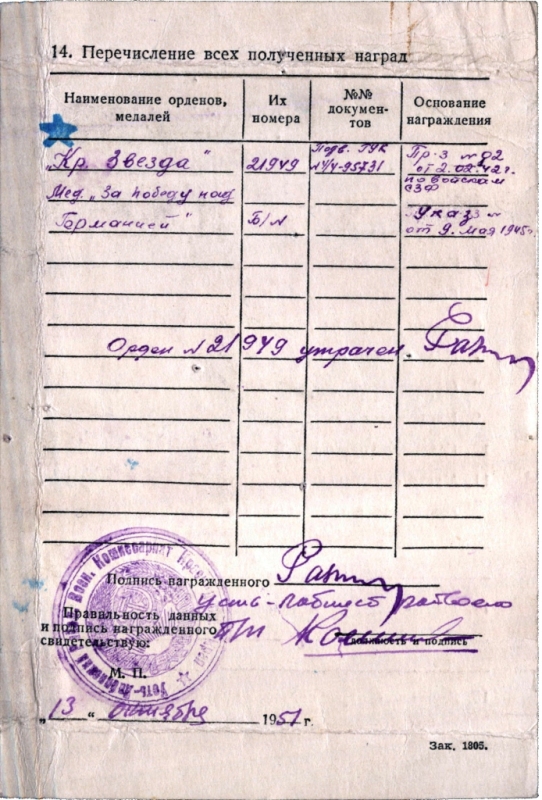 14. Перечисление всех полученных наград
Наименование орденов, медалей
Их номера
№№ докумен-тов
Основание награждения
„Кр. Звезда"
21949
Подв. ГУК
№ 4-95731
Пр-з №82
от 2.02.42 г.
по войскам
СЗФ
Мед. „За победу над
Германией"
Б/N
Указ
от 9. мая 1945 г.
Орден №21949 утрачен.
Подпись награжденного
Усть-Лабинст райвоено
Правильность данных
и подпись награжденного
свидетельствую:
должность и подпись
М. П.
Воен. Комиссариат
„13" октября 1951 г.
Зак. 1805.